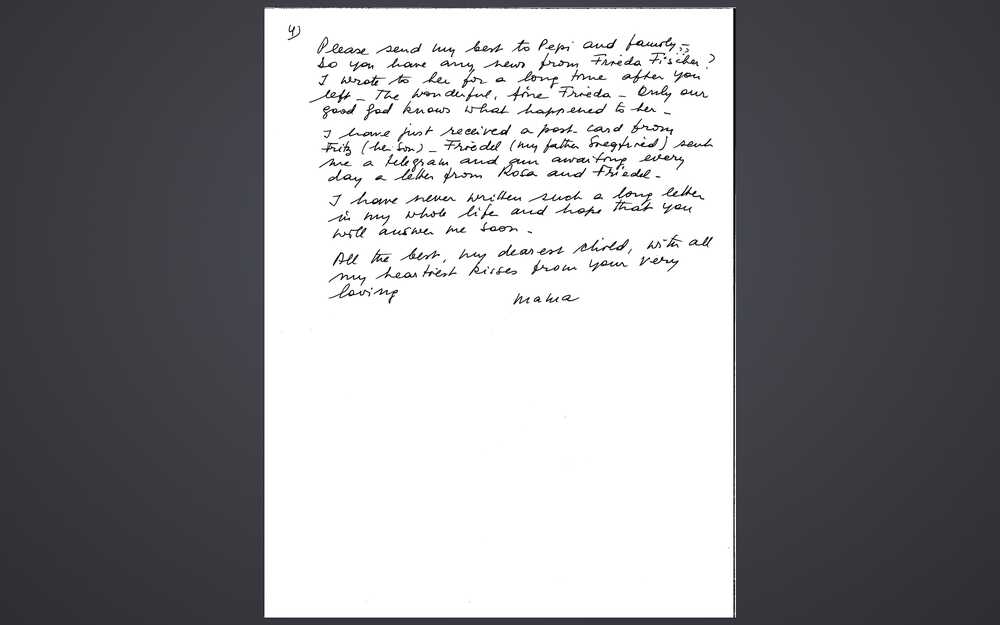 4)
Please send my best to Pepi and family.
Do you have any news from Frieda Fischer?
I wrote to her for a long time after you
left – The wonderful, fine Frieda – Only our
good God knows what happened to her –
I have just received a post-card from
Fritz (her son) – Friedel (my father Siegfried) sent
me a telegram and am awaiting every
day a letter from Rosa and Friedel –
I have never written such a long letter
in my whole life and hope that you
will answer me soon –
All the best, my dearest child, with all
my heartiest kisses from your very
loving
Mama